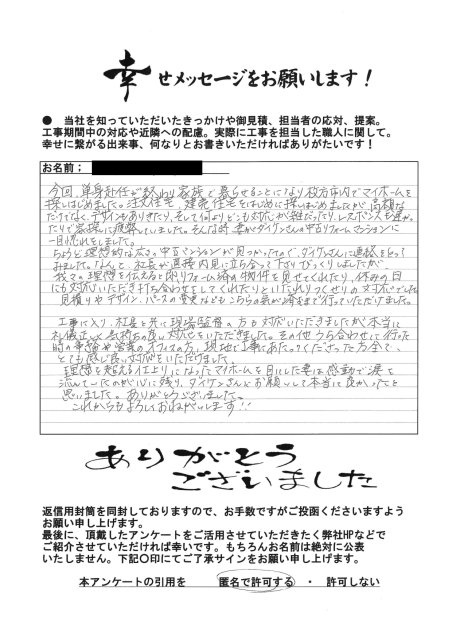 幸せメッセージをお願いします！
● 当社を知っていただいたきっかけや御見積、担当者の応対、提案。
工事期間中の対応や近隣への配慮。実際に工事を担当した職人に関して。
幸せに繋がる出来事、何なりとお書きいただければありがたいです！
お名前；
今回、単身赴任が終わり家族で暮らせることになり枚方市内でマイホームを
探しはじめました。注文住宅、建売住宅をはじめに探しはじめましたが、高額な
だけでなく、デザインもありきたり、そして何よりどこも対応が雑だったり、レスポンスも遅かっ
たりで家探しに疲弊していました。そんな時、妻がダイケンさんの中古リフォームマンションに
一目惚れをしました。
ちょうど理想的な広さの中古マンションが見つかったので、ダイケンさんに連絡をとって
みました。なんと、社長が直接内見に立ち会って下さりびっくりしましたが、
我々の理想を伝えると他のリフォーム済の物件を見せてくれたり、休みの日
にも対応いただき打ち合わせをしてくれたりといたれりつくせりの対応でした。
見積りやデザイン、パースの変更などもこちらの気が済むまで行っていただけました。
工事に入り、社長と共に現場監督の方も対応いただきましたが本当に
礼儀正しく気持ちの良い対応をいただきました。その他うち合わせに行った
時の事務や営業のオフィスの方、現地で工事にあたってくださった方全て、
とても感じ良い対応をいただけました。
理想を超える仕上りになったマイホームを目にした妻は感動で涙を
流していたのが心に残り、ダイケンさんにお願いして本当に良かったと
思いました。ありがとうございました。
これからもよろしくおねがいします!!
ありがとう
ございました
返信用封筒を同封しておりますので、お手数ですがご投函くださいますよう
お願い申し上げます。
最後に、頂戴したアンケートをご活用させていただきたく弊社HPなどで
ご紹介させていただければ幸いです。もちろんお名前は絶対に公表
いたしません。下記〇印にてご了承サインをお願い申し上げます。
本アンケートの引用を 匿名で許可する ・ 許可しない